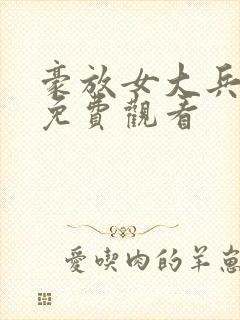 豪放女大兵
免費觀看
愛喫肉的羊崽